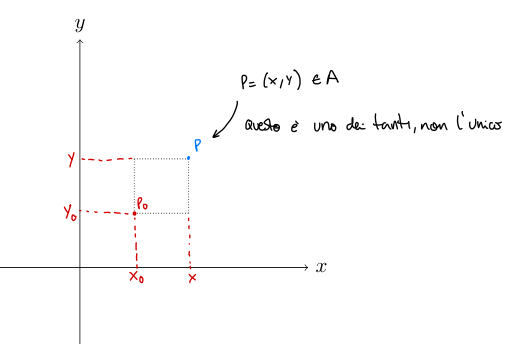 y
P = (x,y) ∈ A
Questo è uno dei tanti, non l'unico
P
y
P₀
y₀
x₀
x
x